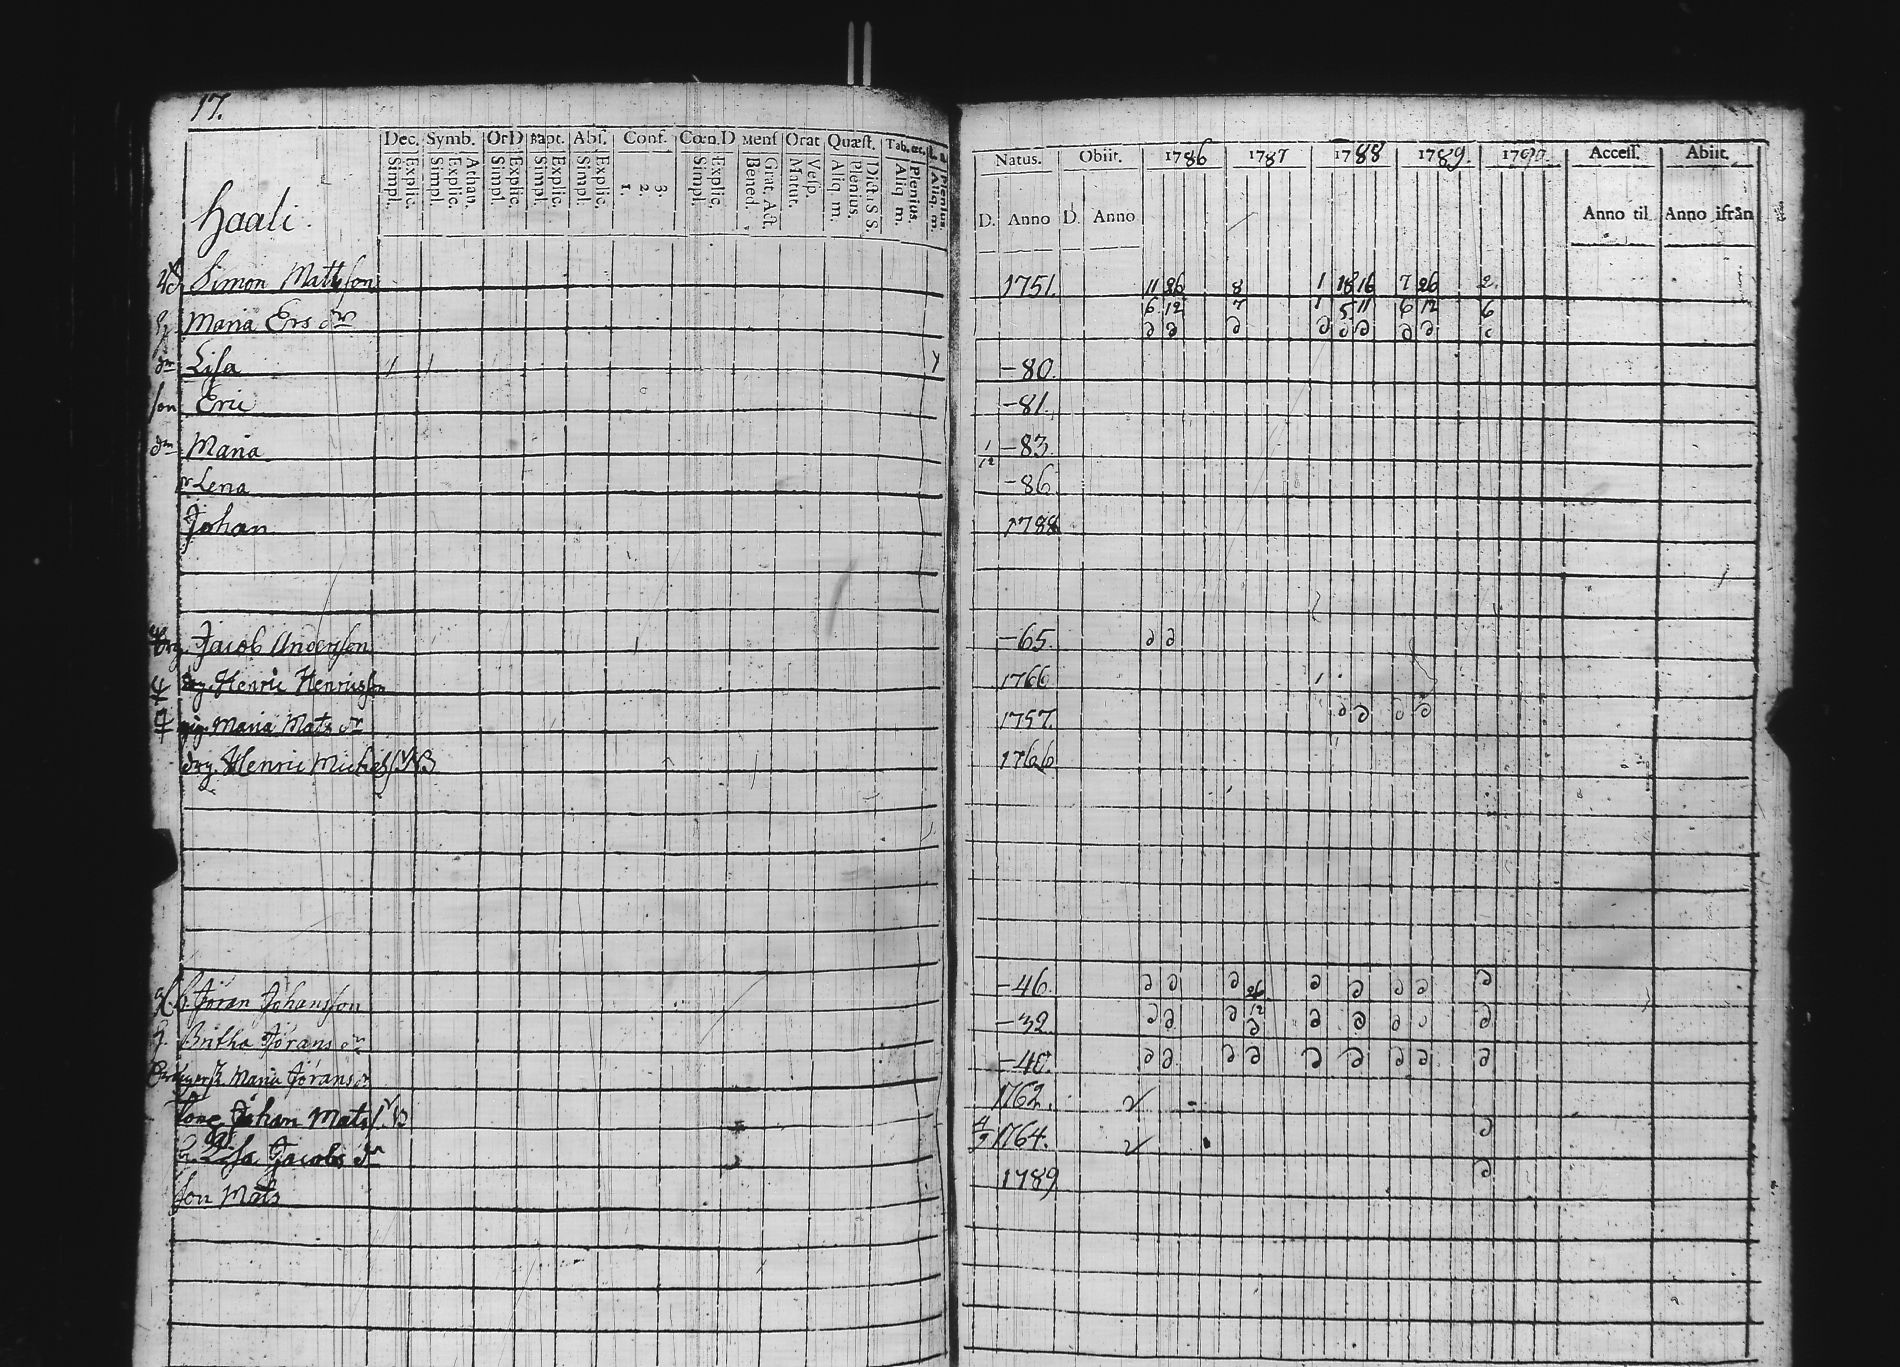 17.
Dec. Symb. Or D Bapt. Abs. Conf. Cœn. D Mens Orat Quæst. Tab. œc. L. n.
Simpl. Explic. Simpl. Explic. Athan. Simpl. Explic. Simpl. Explic. Simpl. Explic. 1. 2. 3. Simpl. Explic. Bened. Grat. Act. Matut. Vesp. Aliq m. Plenius. Dicta S S. Aliq m. Plenius. Aliq m. Plenius.
Natus. Obiit. 1786 1787 1788 1789. 1790. Access. Abiit.
D. Anno D. Anno Anno til Anno ifrån
Haali.
Simon Mattsson 1751. 11 26 8 1 18 16 7 26 2.
Maria Ers dr 6 12 7 1 5 11 6 12 6
dr Lisa 1 1 -80.
son Eric -81.
dr Maria 1 12 -83.
Lena -86.
Johan 1788
Jacob Andersson -65.
drg. Henric Henricsson 1766
pig. Maria Mats dr 1757.
drg. Henric Michels. 1766
Jöran Johansson -46. 26
Britha Jörans dr -32. 12
Maria Jörans dr -40.
Johan Mats 1762.
Jacobs dr 4 1764.
son Mats 1789